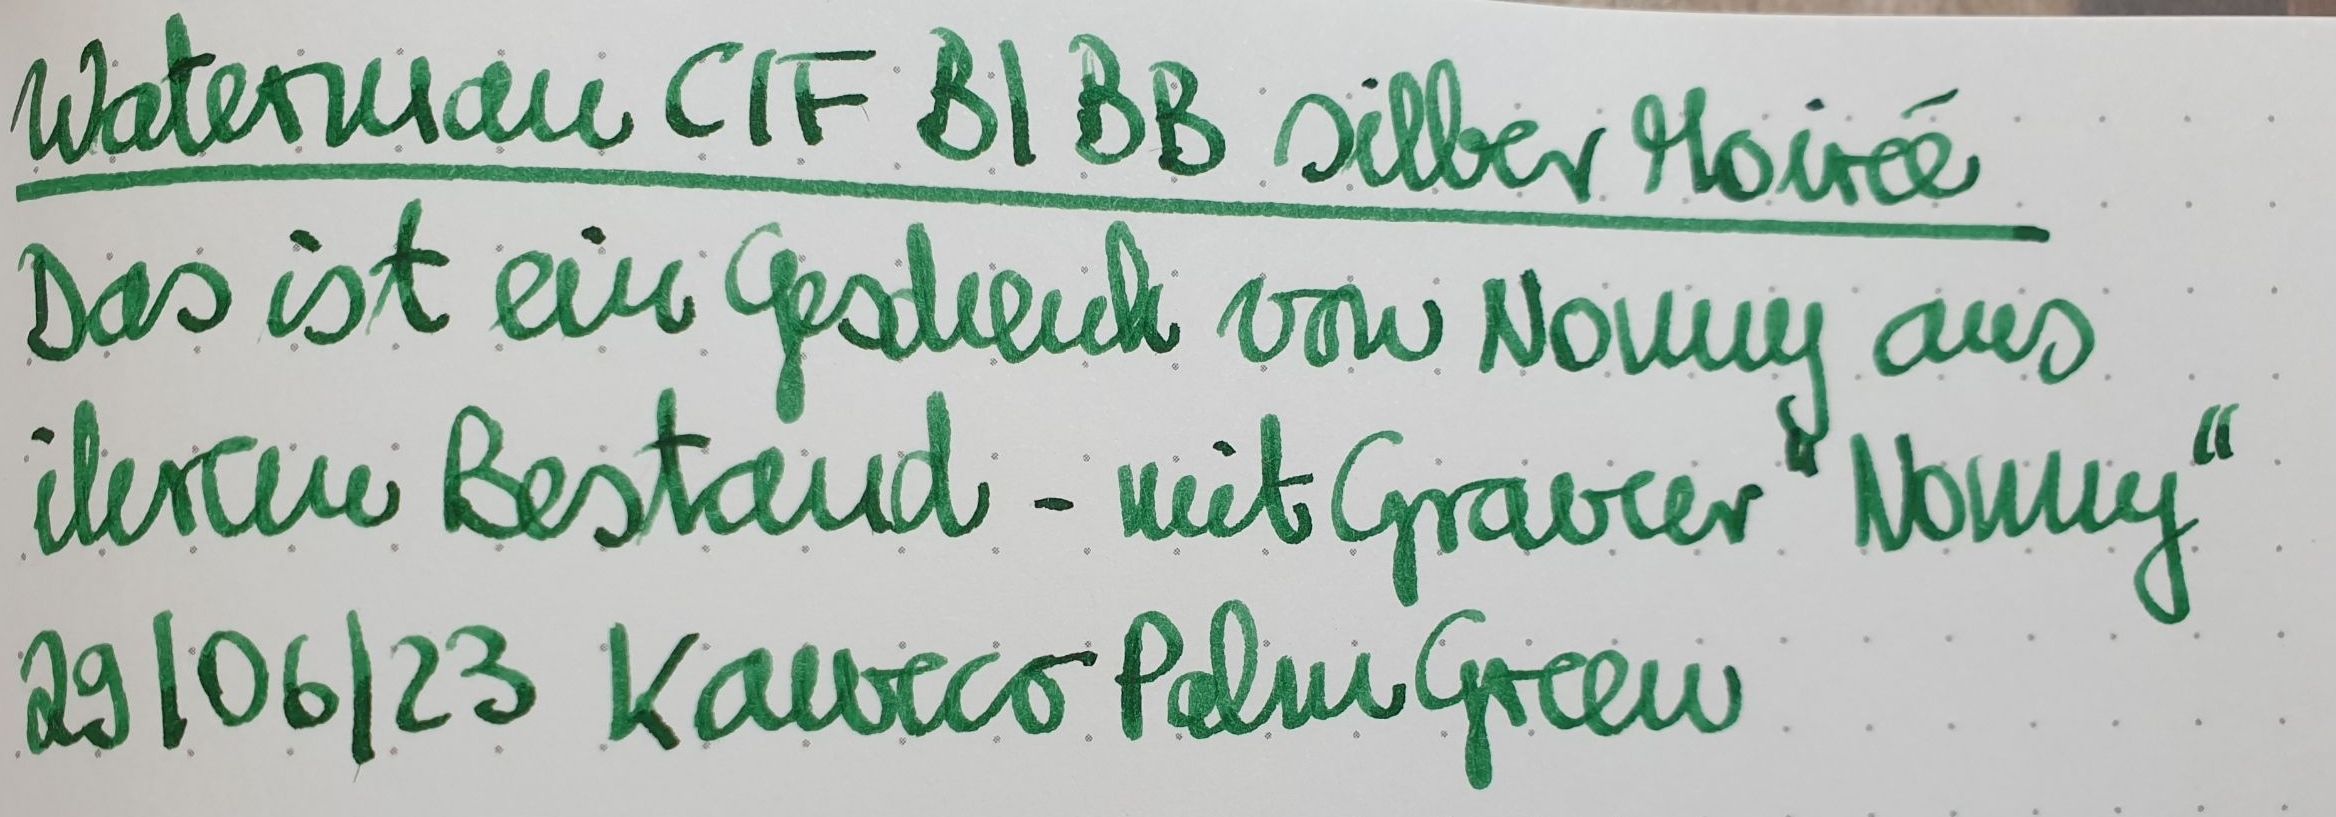 Waterman C/F B/BB silber Moireé
Das ist ein Geschenk von Nonny aus
ihrem Bestand - mit Gravier "Nonny"
29/06/23 Kaweco Palm Green